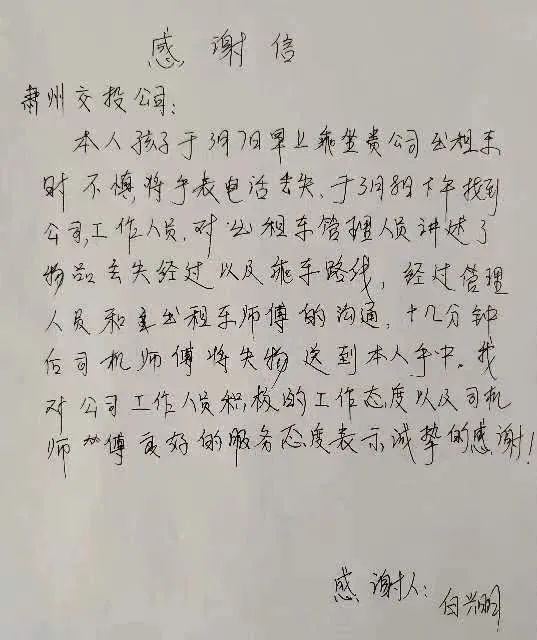 感谢信
肃州交投公司:
本人孩子于3月7日早上乘坐贵公司出租车
时不慎,将手表电话丢失、于3月8日下午找到
公司,工作人员.对出租车管理人员讲述了
物品丢失经过以及乘车路线,经过管理
人员和出租车师傅的沟通,十几分钟
后司机师傅将失物送到本人手中。我
对公司工作人员积极的工作态度以及司机
师傅良好的服务态度表示诚挚的感谢!
感谢人:白兴明